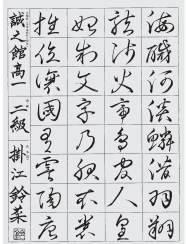 海鹹河淡鱗潛羽翔
龍師火帝鳥官人皇
始制文字乃服衣裳
推位讓國有虞陶唐
誠之館高一 二級 掛江鈴柔